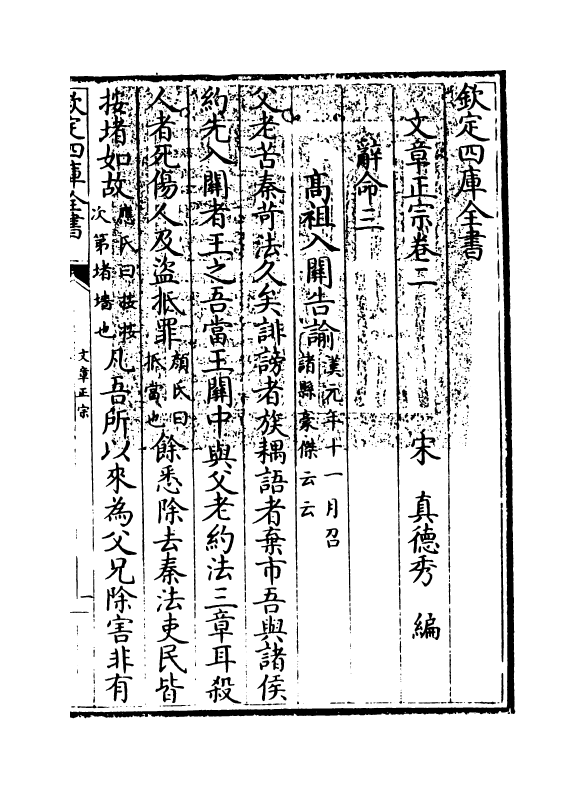 欽定四庫全書
文章正宗卷二
宋　真德秀　編
辭命二
髙祖入闗告諭漢元年十一月召諸縣豪傑云云
父老苦秦苛法久矣誹謗者族耦語者棄市吾與諸侯
約先入闗者王之吾當王闗中與父老約法三章耳殺
人者死傷人及盜抵罪顔氏曰抵當也餘悉除去秦法吏民皆
按堵如故應氏曰按按次第堵墻也凡吾所以來為父兄除害非有
欽定四庫全書
文章正宗
一